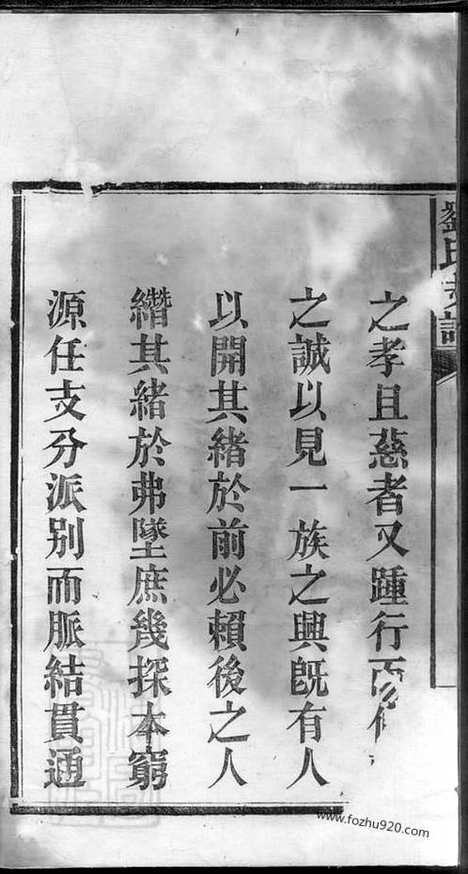 劉氏支譜
之孝且慈者又踵行而
之誠以見一族之興旣有人
以開其緒於前必賴後之人
繼其緒於弗墜庶幾探本窮
源任支分派別而脈結貫通
www.fozhu920.com